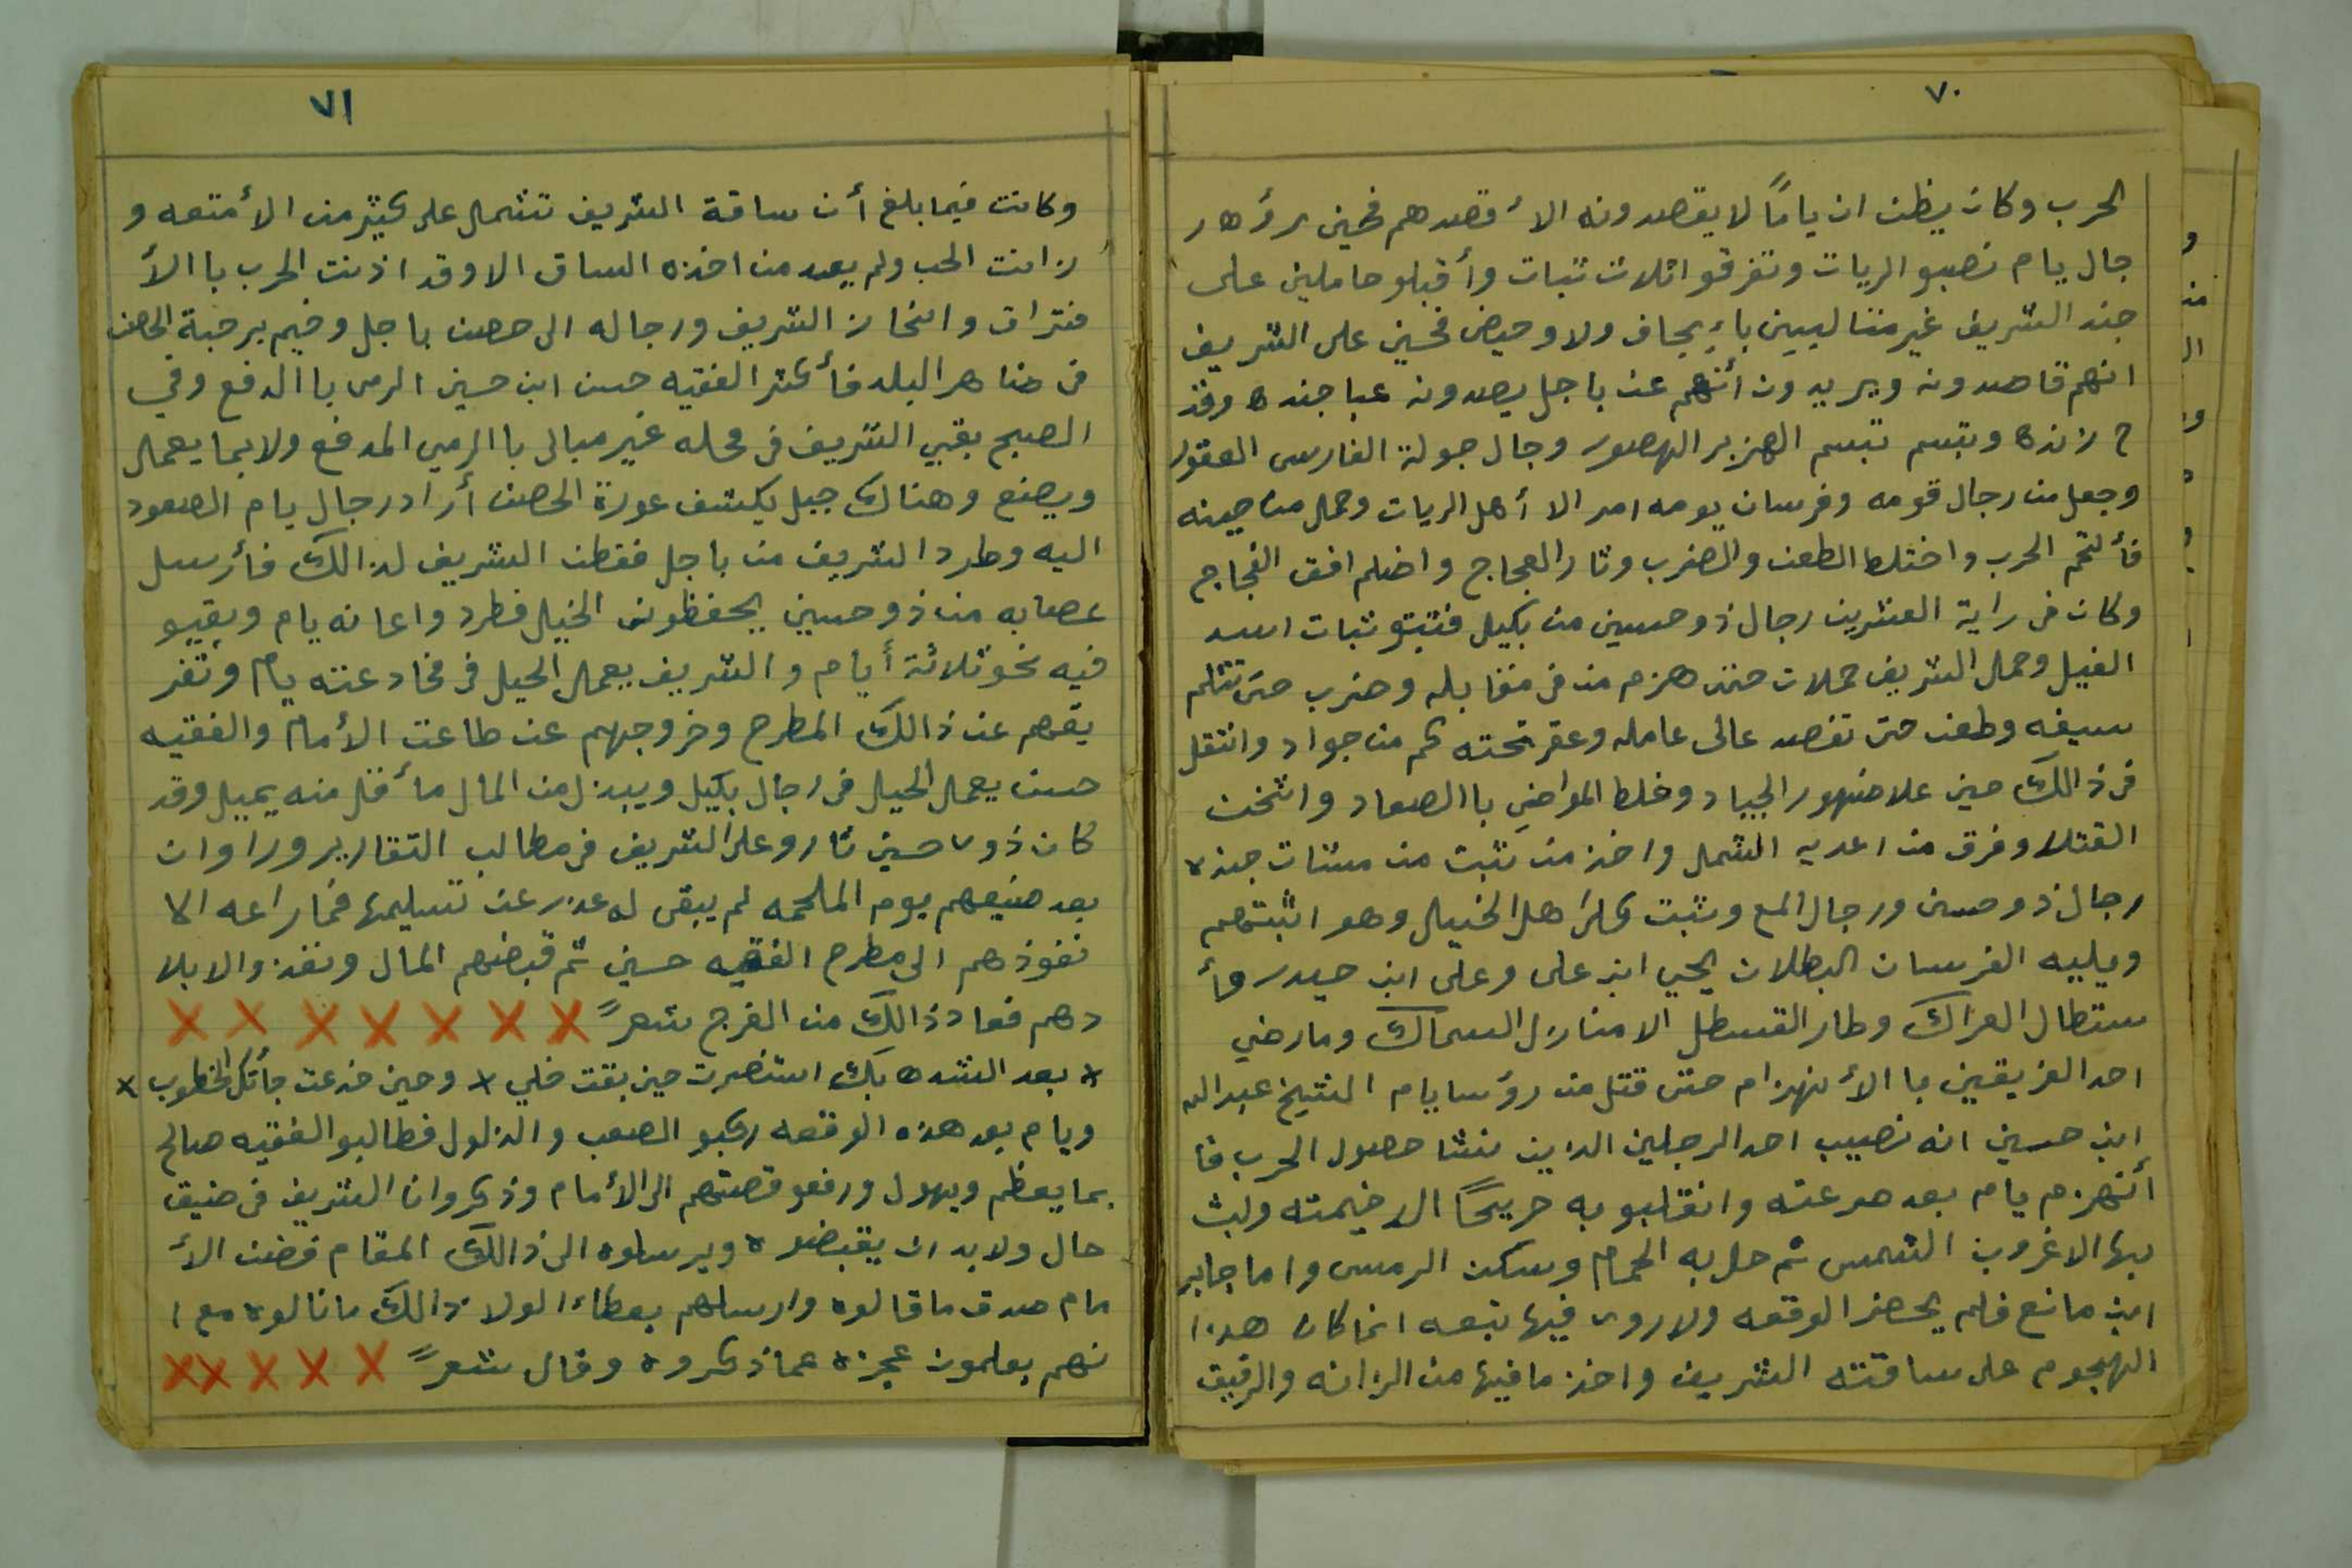 ٧٠
الحرب وكان يظن ان ياماً لا يقصدونه الأ قصدهم فحين رؤه ر
جال يام نصبو الريات وتفرقو اثلاث ثبات وأقبلو حاملين على
جند الشريف غير متالبيين بأيجاف ولا وحيض فحسين على الشريف
انهم قاصدونه ويريدون أنهم عن باجل يصدونه عبا جنده وقد
ح زنده وبتسم تبسم الهزبر الهصور وجال جولة الفارس العقور
وجعل من رجال قومه وفرسان يومه امر الا أهل الريات وحمل من حينه
فألتحم الحرب واختلط الطعن والضرب وثار العجاج واضلم افق الفجاج
وكان في راية الشريف رجال ذو حسين من بكيل فثبتو ثبات اسد
الغيل وحمل الشريف حملات حتى هزم من في مقابله وضرب حتى تثلم
سيفه وطعن حتى تقصد عالى عامله وعقر تحته كم من جواد وانتقل
في ذالك حين علا ضهور الجياد وخلط المواضي با الصعاد واثخن
القتلا وفرق من اعديه الشمل واخذ من ثبت من مشات جنده
رجال ذو حسين ورجال المع وثبت كل اهل الخيل وهو اثبتهم
ويليه الفرسان البطلان يحيى ابن على وعلى ابن حيدر وأ
ستطال العراك وطار القسطل الا منازل السماك ومارضي
احد الفريقين با الأنهزام حتى قتل من رؤسا يام الشيخ عبدالله
ابن حسين انه نصيب احد الرجلين الذين منشا حصول الحرب فا
أنهزم يام بعد صرعته وانقلبو به جريحاً الا خيمته ولبث
بها الا غروب الشمس ثم حل به الحمام وسكن الرمس واما جابر
ابن مانع فلم يحضر الوقعه ولاروى فيها تبعه انما كان هذا
الهجوم على ساقته الشريف واخذ مافيها من الزانه والرقيق
٧١
وكانت فيما بلغ أن ساقة الشريف تشمل على كثير من الأمتعه و
زانت الحب ولم يعد من اخذه الساق الا وقد اذنت الحرب با الأ
فتراق وانحاز الشريف ورجاله الى حصن باجل وخيم برحبة الحصن
في ضاهر البلد فأكثر الفقيه حسن ابن حسين الرمى با الدفع وفي
الصبح بقيي الشريف في محله غير مبالى با الرمي المدفع ولا بما يعمل
ويصنع وهناك جبل يكشف عورة الحصن أراد رجال يام الصعود
اليه وطرد الشريف من باجل ففطن الشريف لذالك فأرسل
عصابه من ذو حسين يحفظون الخيل فطرد واعانه يام وبقيو
فيه نحو ثلاثة أيام والشريف يعمل الحيل في مخادعته يام وتفر
يقهم عن ذالك المطرح وخروجهم عن طاعت الأمام والفقيه
حسن يعمل الحيل في رجال بكيل ويبذل من المال مأقل منه يميل وقد
كان ذوى حسين ثارو على الشريف في مطالب التقارير وراو ان
بعد صنيعهم يوم الملحمه لم يبقى له عذر عن تسليمها فما راعه الا
نفوذهم الى مطرح الفقيه حسين ثم قبضهم المال ونفذو الا بلا
دهم فعاد ذالك من الفرج شعرً × × × × × × ×
* بعد الشده بك استنصرت حين بقت خلي * وحين خدعت جأتك الخطوب *
ويام بعد هذه الوقعه ركبو الصعب والذلول فطالبو الفقيه صالح
بما يعظم ويهول ورفعو قصتهم الى الأمام وذكروان الشريف في ضيق
حال ولابد ان يقبضوه ويرسلوه الى ذالك المقام فضن الأ
مام صدق ماقالوه وارسلهم بعطاء لولا ذالك مانالوه مع ا
نهم يعلمون عجزه عما ذكروه وقال شعرً × × × × ×